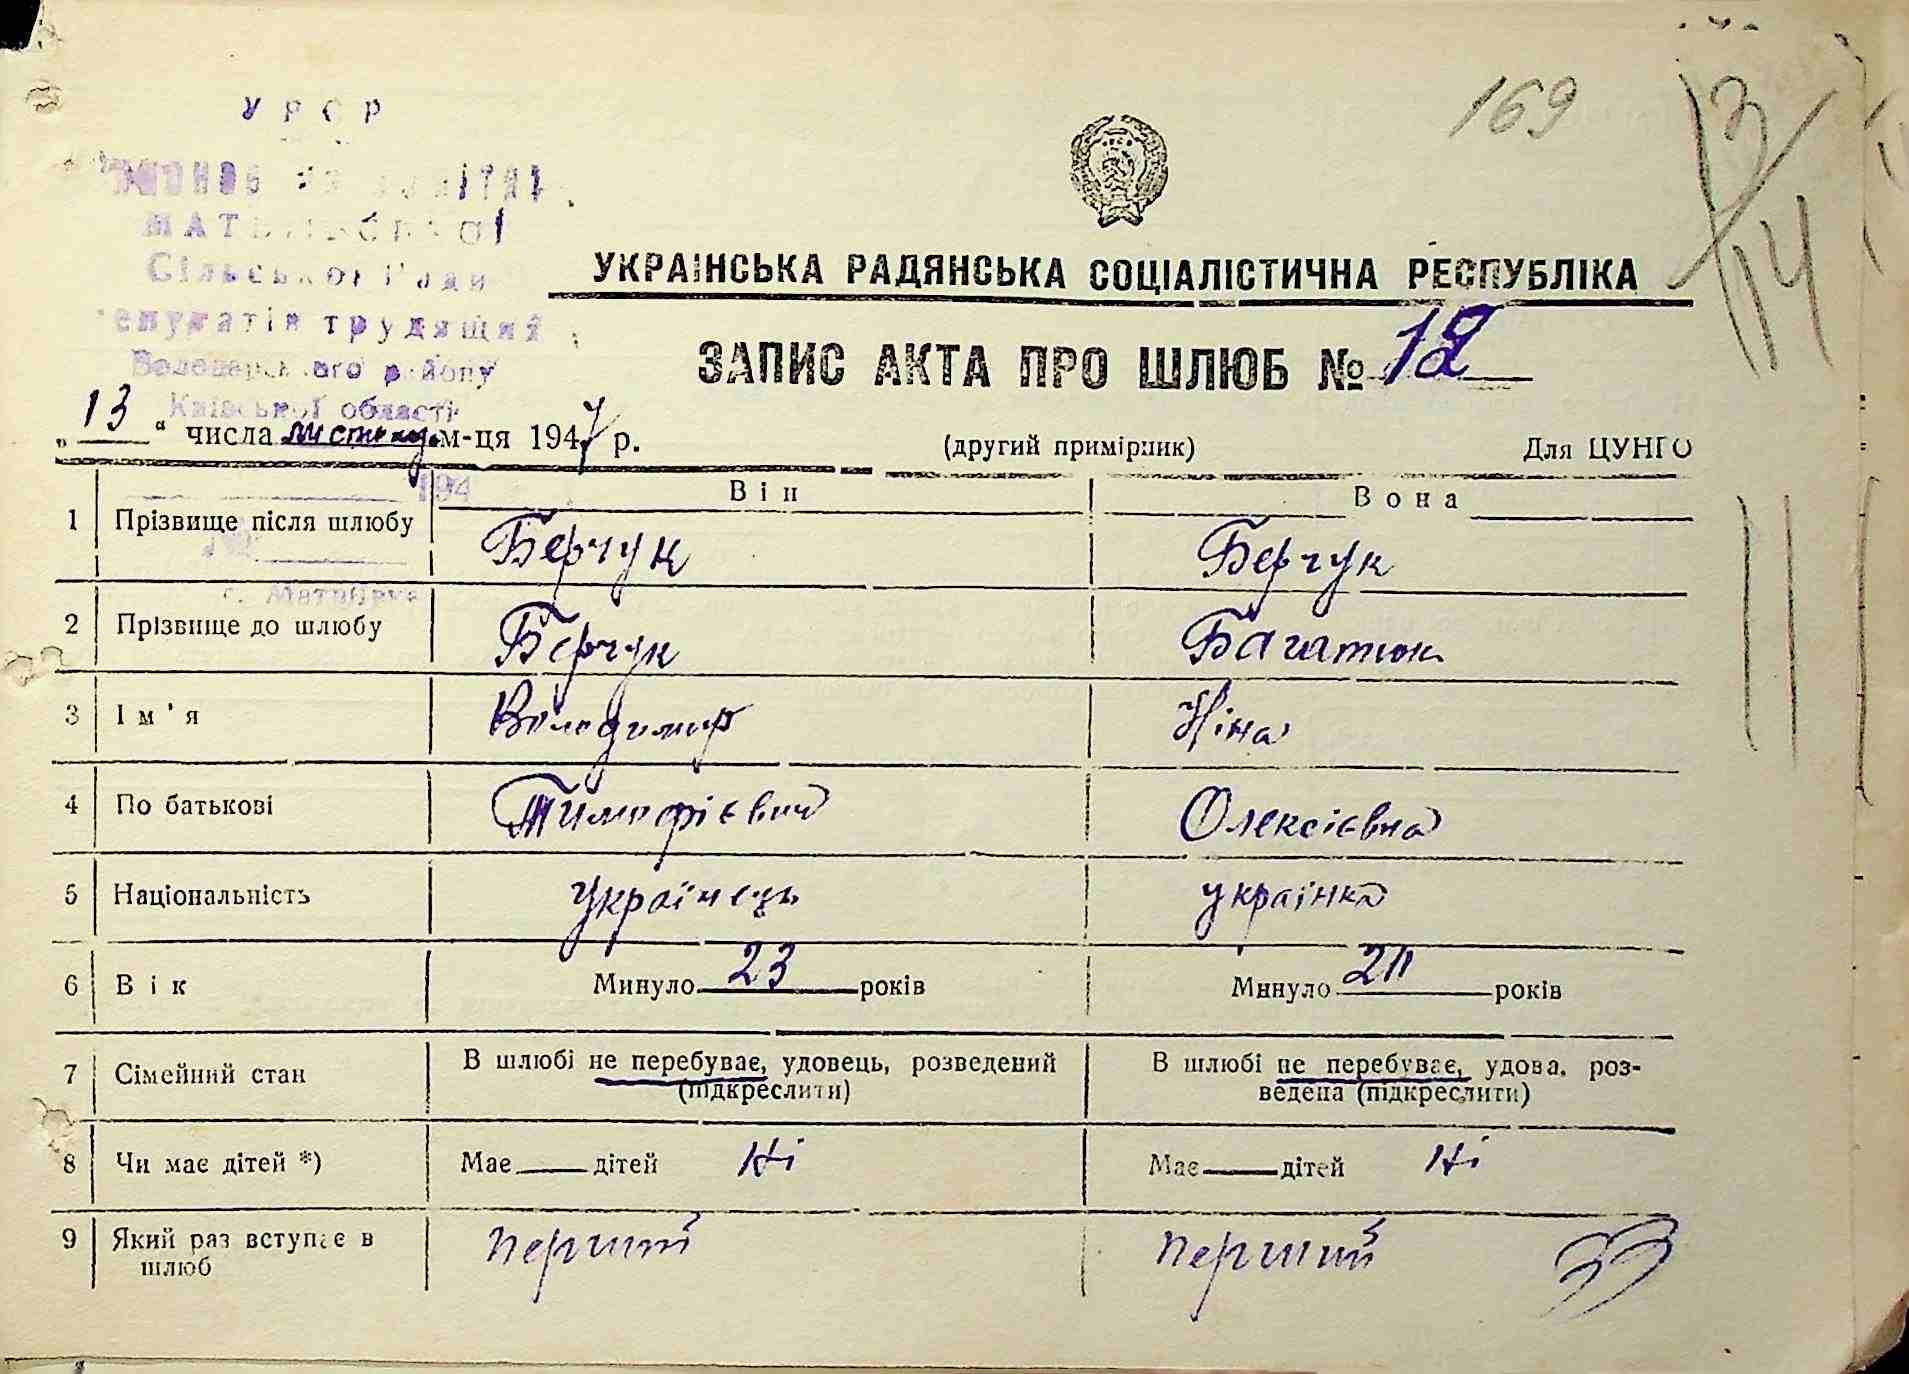 УРСР
Сільської Ради
депутатів трудящих
Володарського району
Київської області
169
13
14
УКРАЇНСЬКА РАДЯНСЬКА СОЦІАЛІСТИЧНА РЕСПУБЛІКА
ЗАПИС АКТА ПРО ШЛЮБ № 12
„13“ числа листопад м-ця 1947 р. (другий примірник) Для ЦУНГО
194
Він Вона
1 Прізвище після шлюбу Берчук Берчук
2 Прізвище до шлюбу Берчук Багатюк
3 Ім'я Володимир Ніна
4 По батькові Тимофієвич Олексієвна
5 Національність українець українка
6 Вік Минуло 23 років Минуло років
7 Сімейний стан В шлюбі не перебуває, удовець, розведений (підкреслити) В шлюбі не перебуває, удова, роз-
ведена (підкреслити)
8 Чи має дітей *) Має дітей Ні Має дітей Ні
9 Який раз вступає в шлюб перший перший